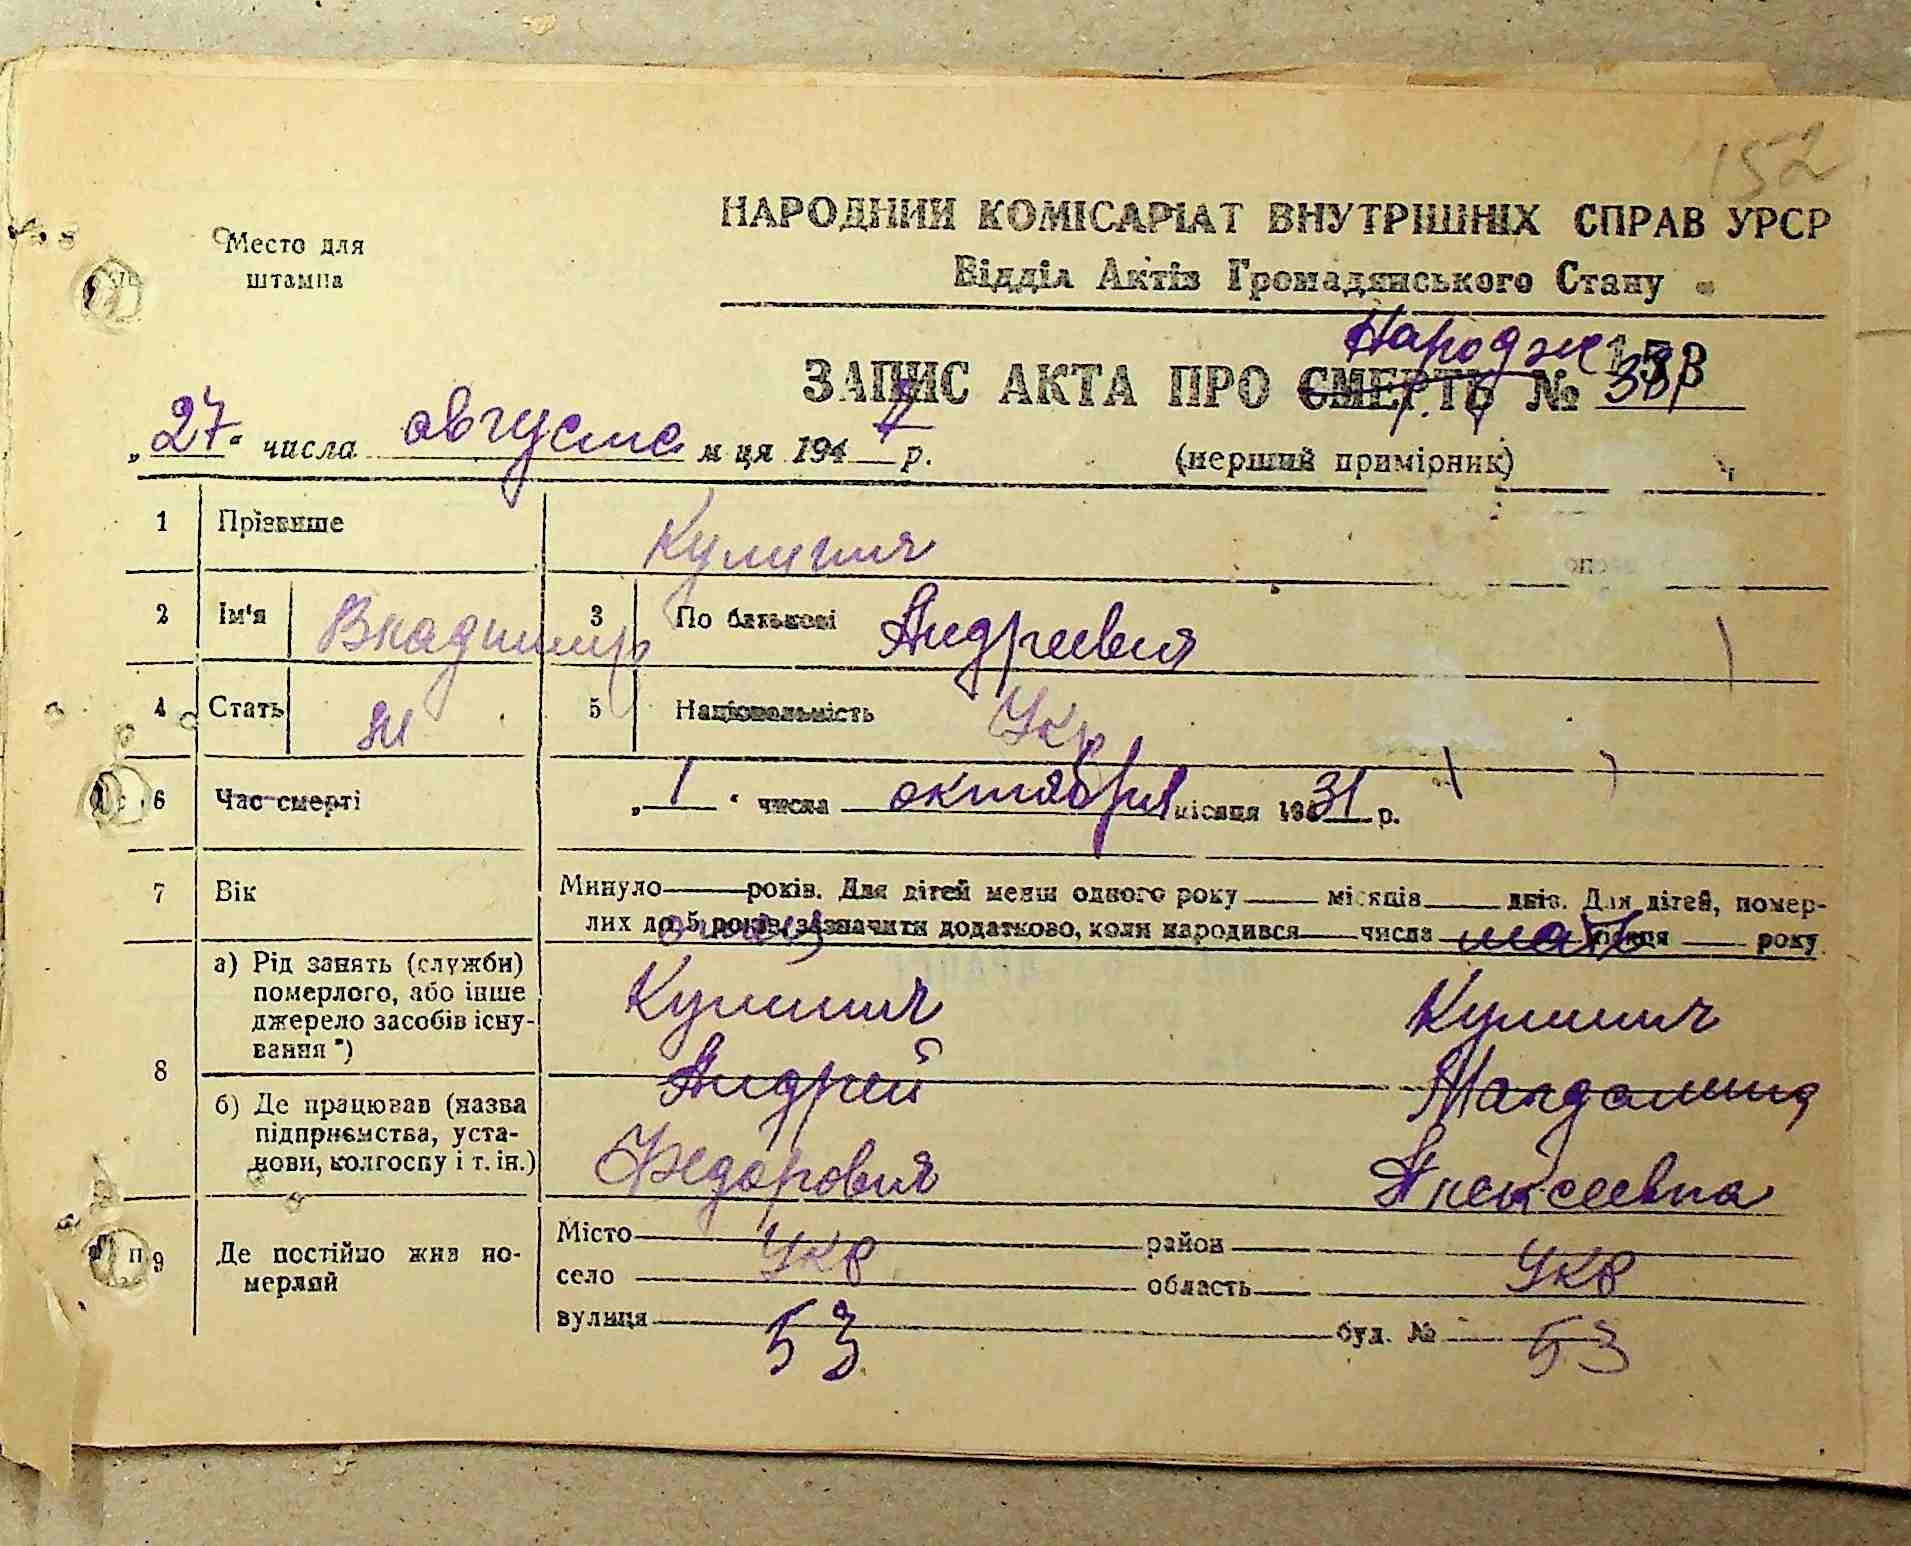 152
Место для
штампа
НАРОДНИЙ КОМІСАРІАТ ВНУТРІШНІХ СПРАВ УРСР
Відділ Актів Громадянського Стану
Народж
ЗАПИС АКТА ПРО СМЕРТЬ №
„27" числа августа м-ця 194 р.
(перший примірник)
1 Прізвище Кулинич
2 Ім'я Владимир 3 По батькові Андреевич
4 Стать м 5 Національність Укр
6 Час смерті „1" числа октября місяця 1931 р.
7 Вік Минуло року. Для дітей менш одного року місяців днів. Для дітей, помер-
лих до 5 років, зазначити додатково, коли народився числа місяця року
отец мать
8 а) Рід занять (служби)
померлого, або інше
джерело засобів існу-
вання *)
Кулинич Кулинич
Андрей Магдалина
б) Де працював (назва
підприємства, уста-
нови, колгоспу і т. ін.)
Федорович Алексеевна
9 Де постійно жив по-
мерлий
Місто район
укр укр
село область
вулиця буд. №
53 53